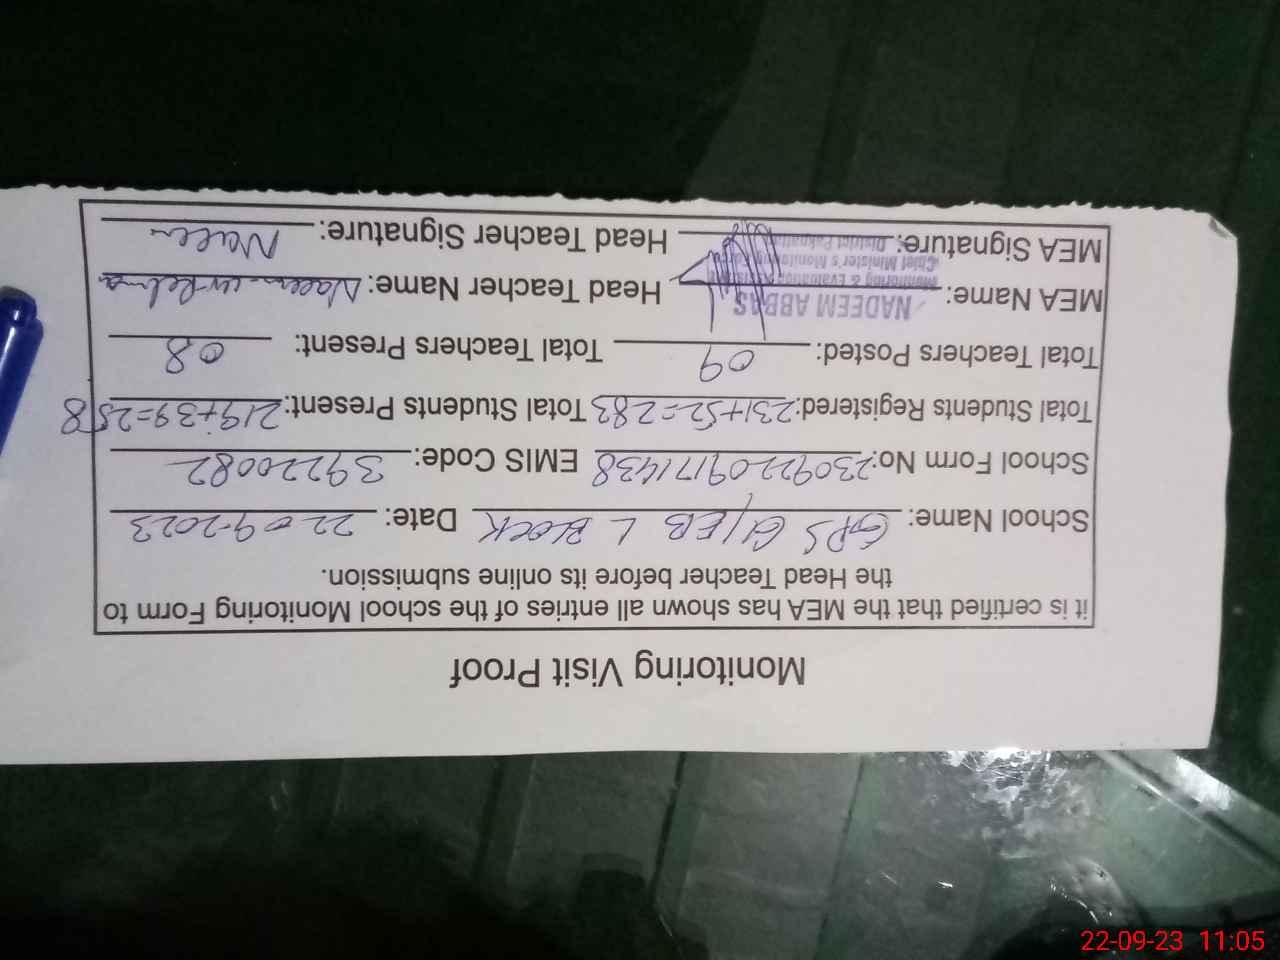 Monitoring Visit Proof
it is certified that the MEA has shown all entries of the school Monitoring Form to
the Head Teacher before its online submission.
School Name: GPS 61/EB L BLOCK Date: 22-09-2023
School Form No: 23092209171438 EMIS Code: 39220082
Total Students Registered: 231+52=283 Total Students Present: 219+39=258
Total Teachers Posted: 09 Total Teachers Present: 08
MEA Name: NADEEM ABBAS Head Teacher Name: Naeem ur Rehman
Monitoring & Evaluation
Chief Minister's Monitoring Force
District Pakpattan
MEA Signature: Head Teacher Signature: Naeem
22-09-23 11:05